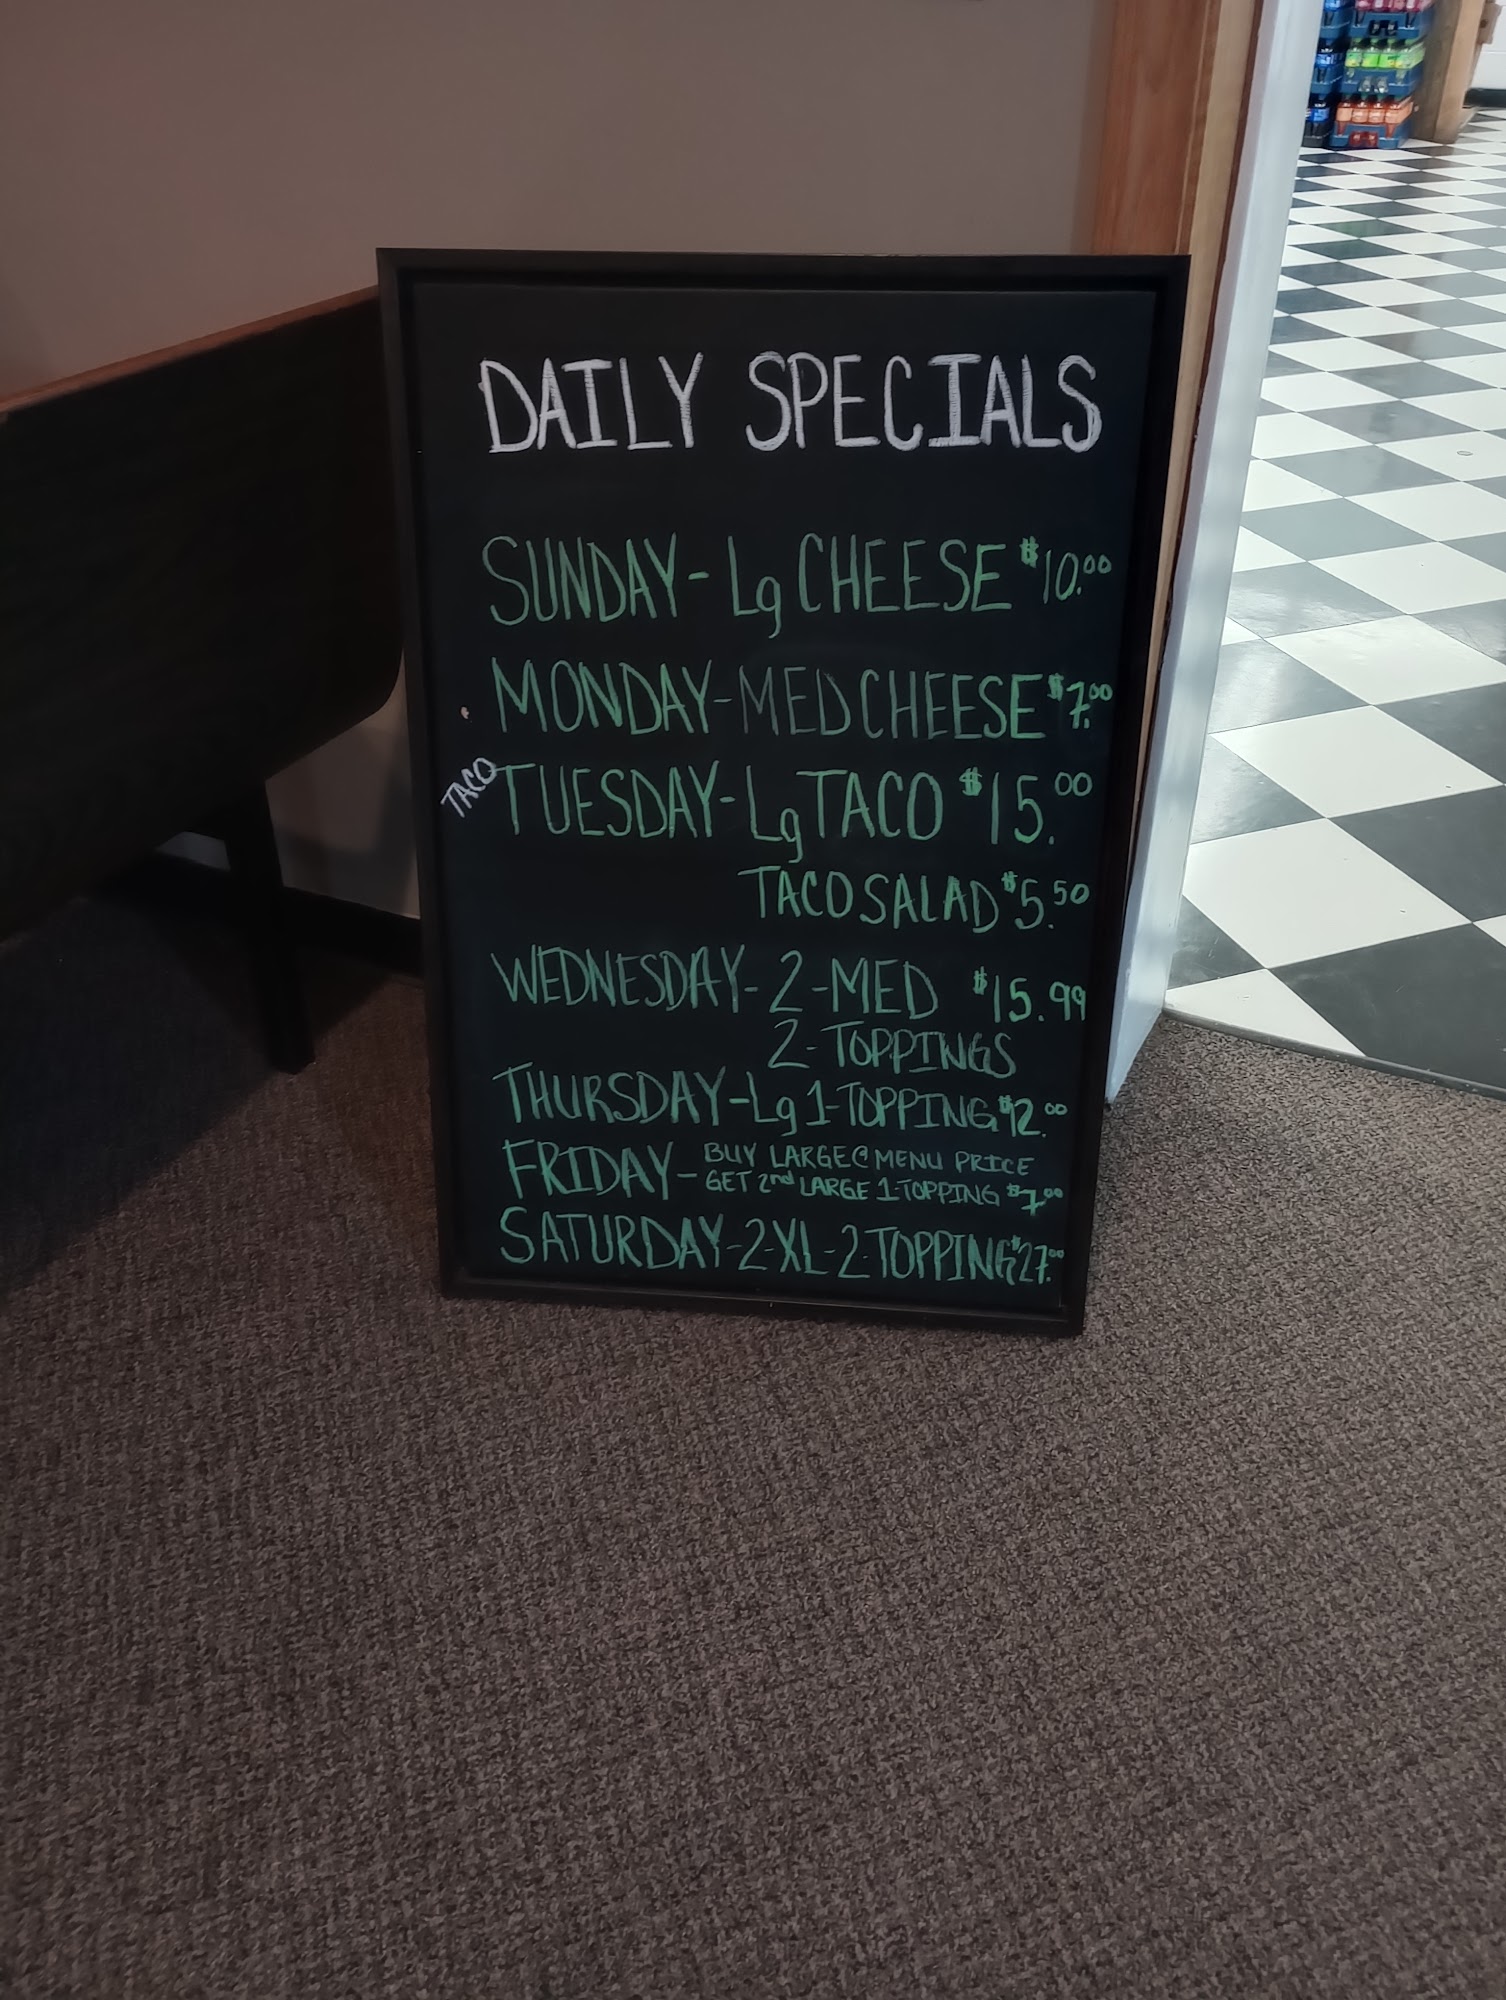 DAILY SPECIALS
SUNDAY - Lg CHEESE $10.00
MONDAY - MED CHEESE $7.00
TACO TUESDAY - Lg TACO $15.00
TACO SALAD $5.50
WEDNESDAY - 2 - MED $15.99
2 - TOPPINGS
THURSDAY - Lg 1-TOPPING $12.00
FRIDAY - BUY LARGE @ MENU PRICE
GET 2nd LARGE 1-TOPPING $7.00
SATURDAY - 2-XL - 2-TOPPING $27.00